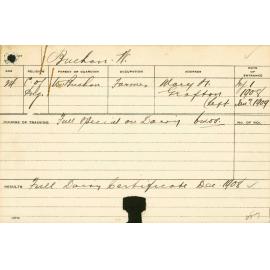 Buchan. W.
AGE
RELIGION
PARENT OR GUARDIAN
OCCUPATION
ADDRESS
DATE OF ENTRANCE
C of
Buchan
Farmer
Mary St
Grafton
1908
1909
COURSE OF TRAINING
Full Special on Dairy
NO. OF HOL.
RESULTS
Full Dairy Certificate Dec 1908 ✓